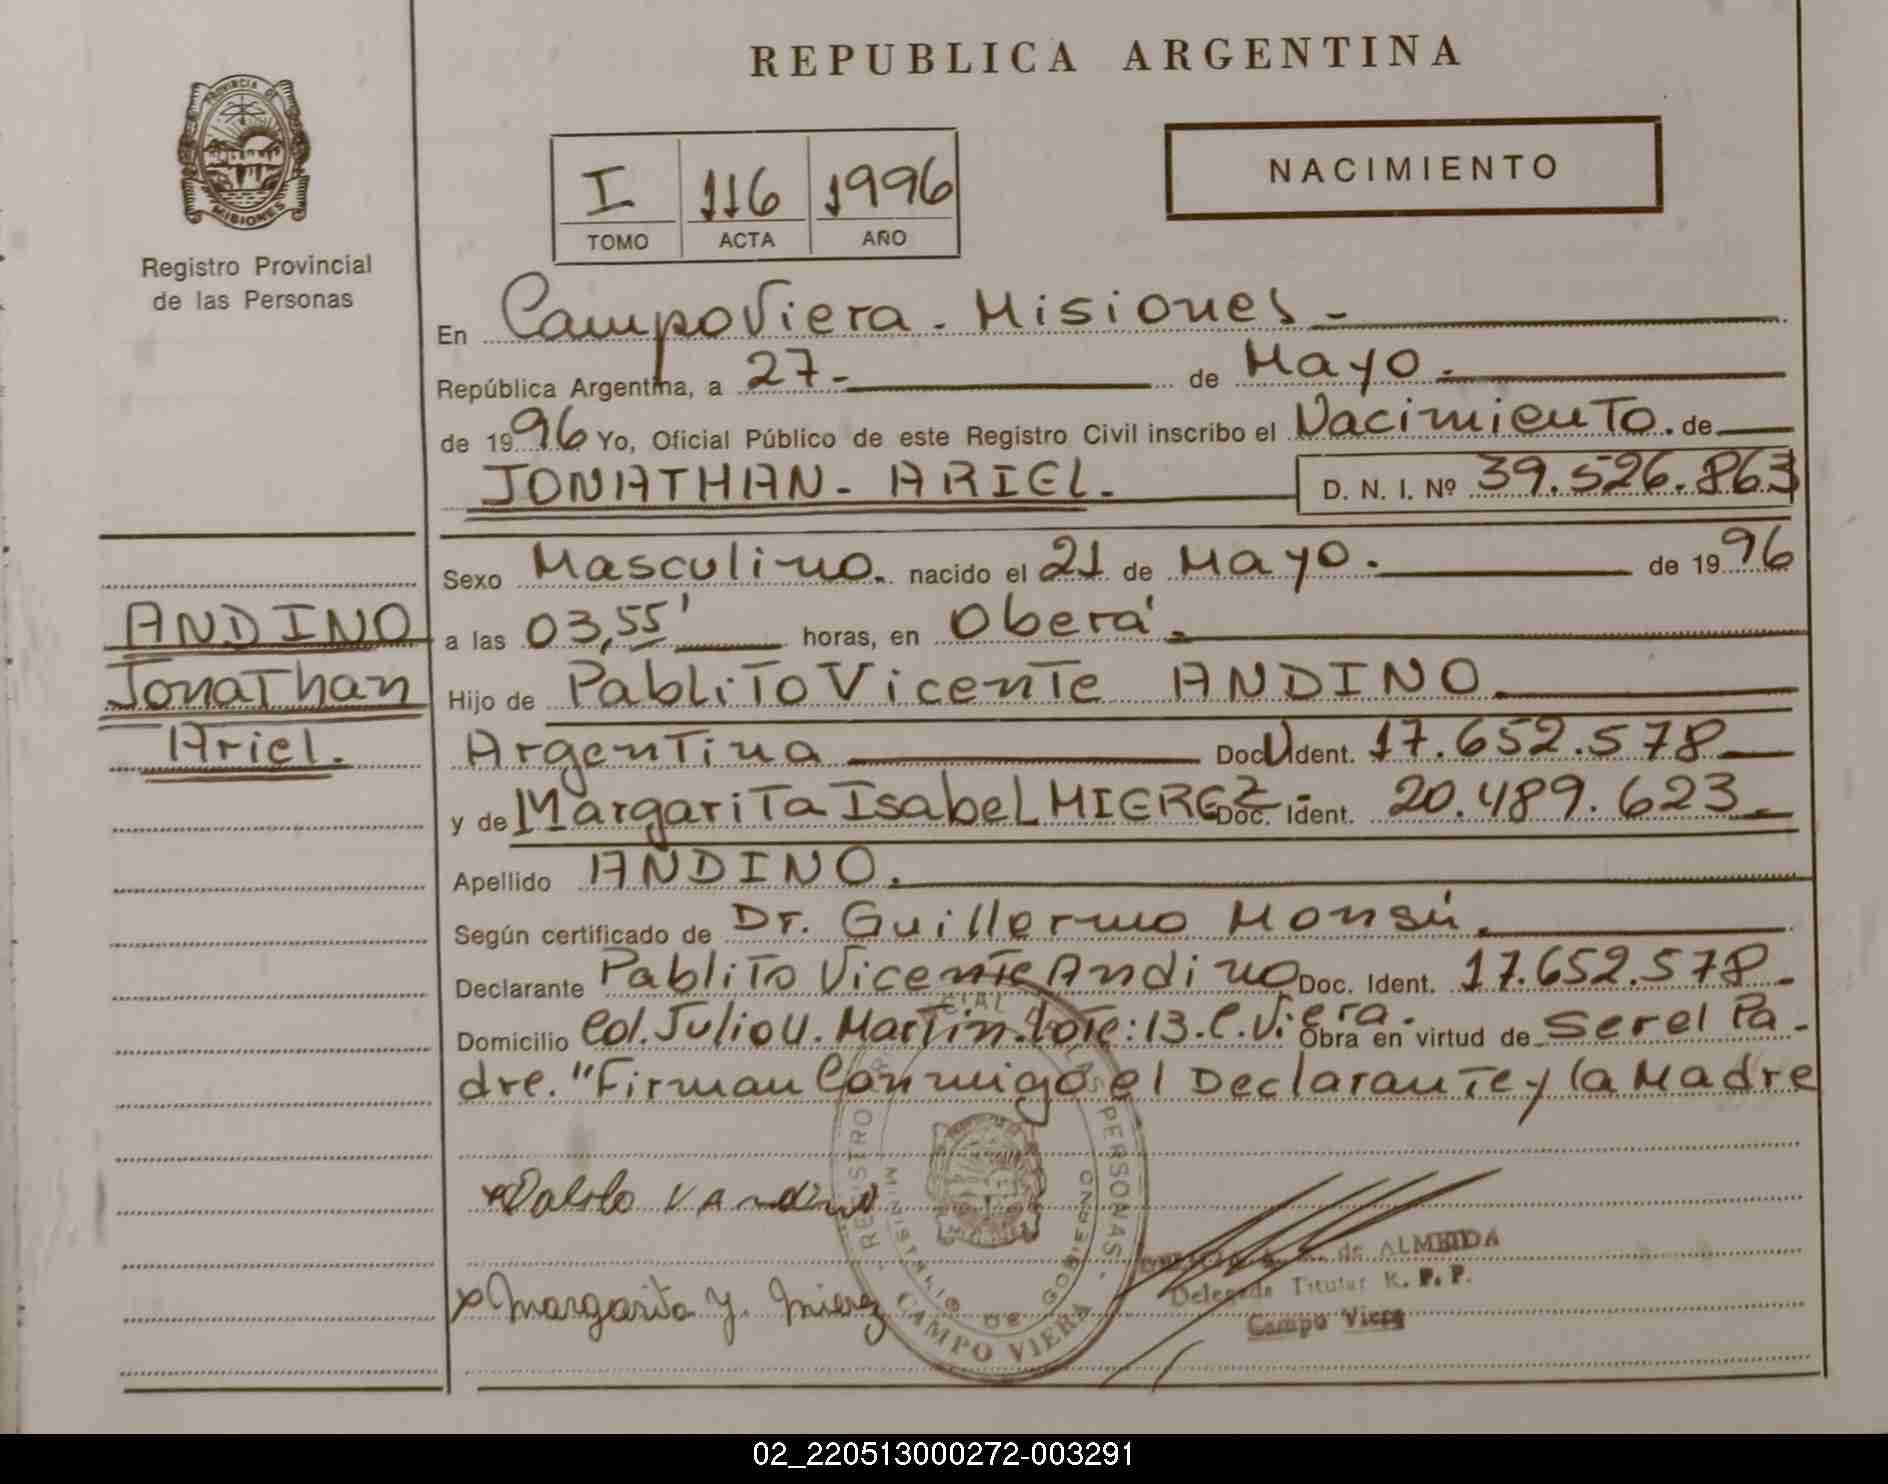 REPUBLICA ARGENTINA
PROVINCIA DE
MISIONES
Registro Provincial
de las Personas
I 116 1996
TOMO ACTA AÑO
NACIMIENTO
En Campo Viera - Misiones -
República Argentina, a 27 - de Mayo.
de 1996 Yo, Oficial Público de este Registro Civil inscribo el Nacimiento. de
JONATHAN - ARIEL. D. N. I. Nº 39.526.863
Sexo Masculino. nacido el 21 de Mayo. de 1996
ANDINO
Jonathan
Ariel.
a las 03,55' horas, en Oberá.
Hijo de Pablito Vicente ANDINO
Argentina Doc. Ident. 17.652.578
y de Margarita Isabel MIEREZ - Doc. Ident. 20.489.623
Apellido ANDINO.
Según certificado de Dr. Guillermo Monsú.
Declarante Pablito Vicente Andino Doc. Ident. 17.652.578 -
Domicilio Col. Julio U. Martin. Lote: 13. C. Viera. Obra en virtud de ser el Pa-
dre. "Firman Conmigo el Declarante y la Madre
Pablo V Andino
x Margarita Y. Mierez
REGISTRO PROVINCIAL DE LAS PERSONAS
MINISTERIO DE GOBIERNO
CAMPO VIERA
de ALMEIDA
Delegada Titular R. P. P.
Campo Viera
02_220513000272-003291